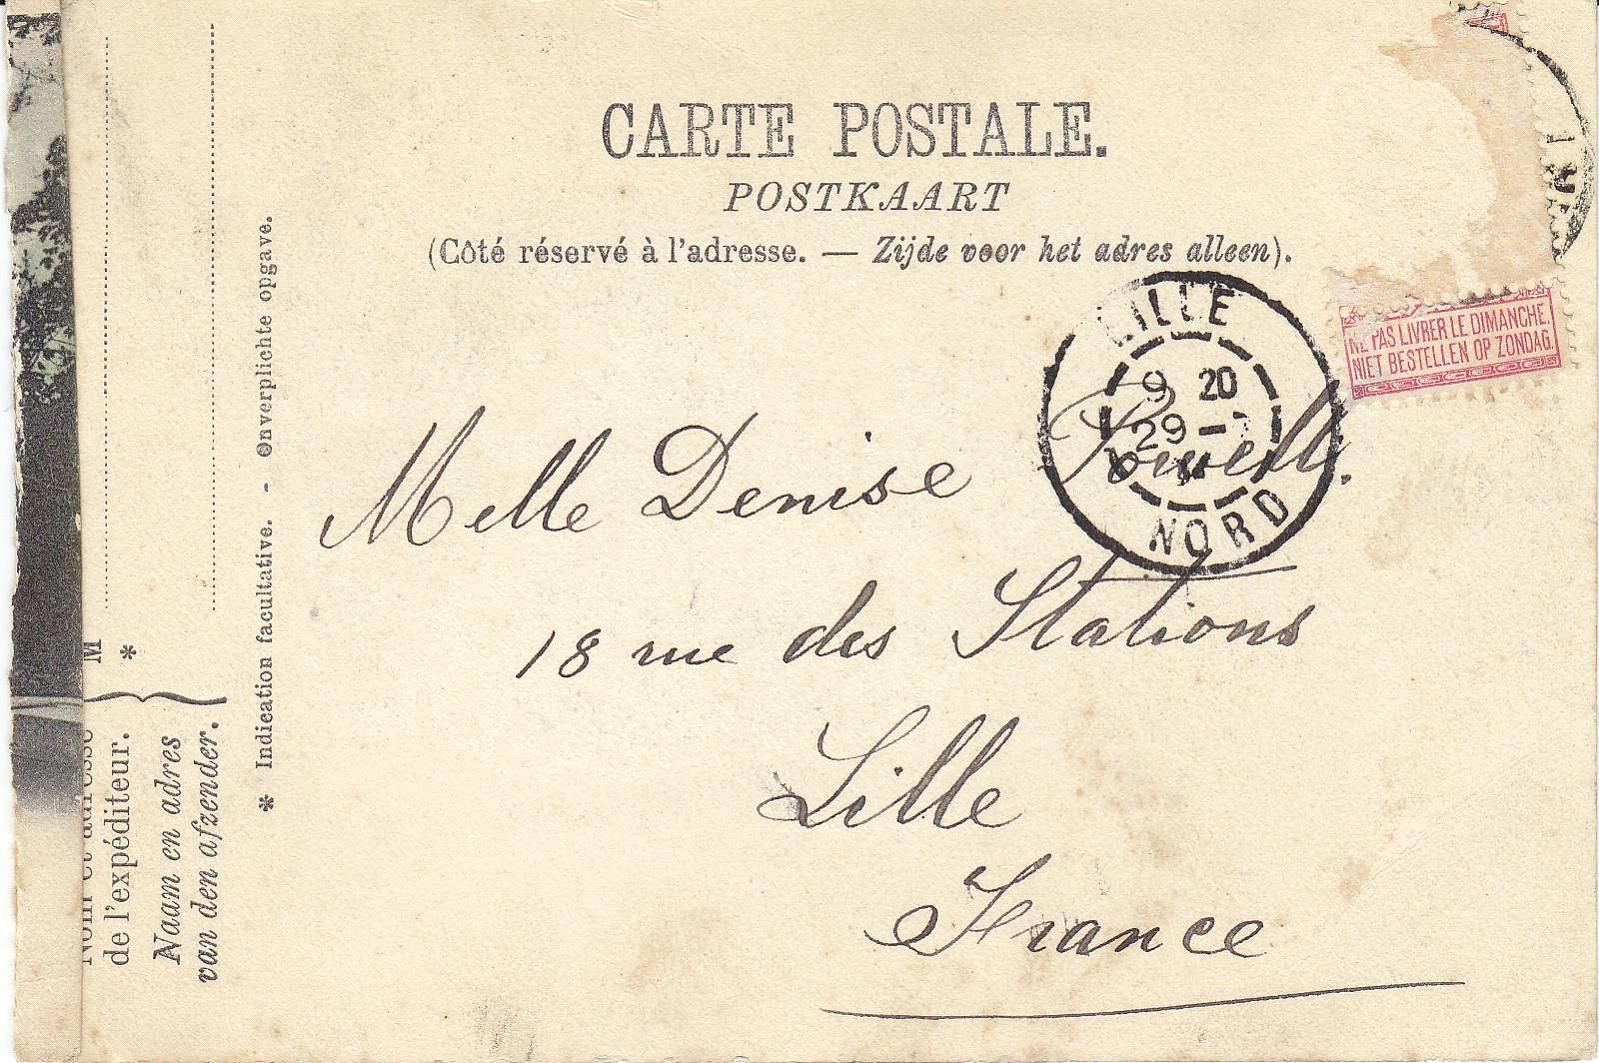 CARTE POSTALE.
POSTKAART
(Côté réservé à l'adresse. — Zijde voor het adres alleen).
LILLE
9 20
29 -
NORD
NE PAS LIVRER LE DIMANCHE.
NIET BESTELLEN OP ZONDAG.
Melle Denise
18 rue des Stations
Lille
France
M
*
Nom et adresse
de l'expéditeur.
Naam en adres
van den afzender.
* Indication facultative. - Onverplichte opgave.